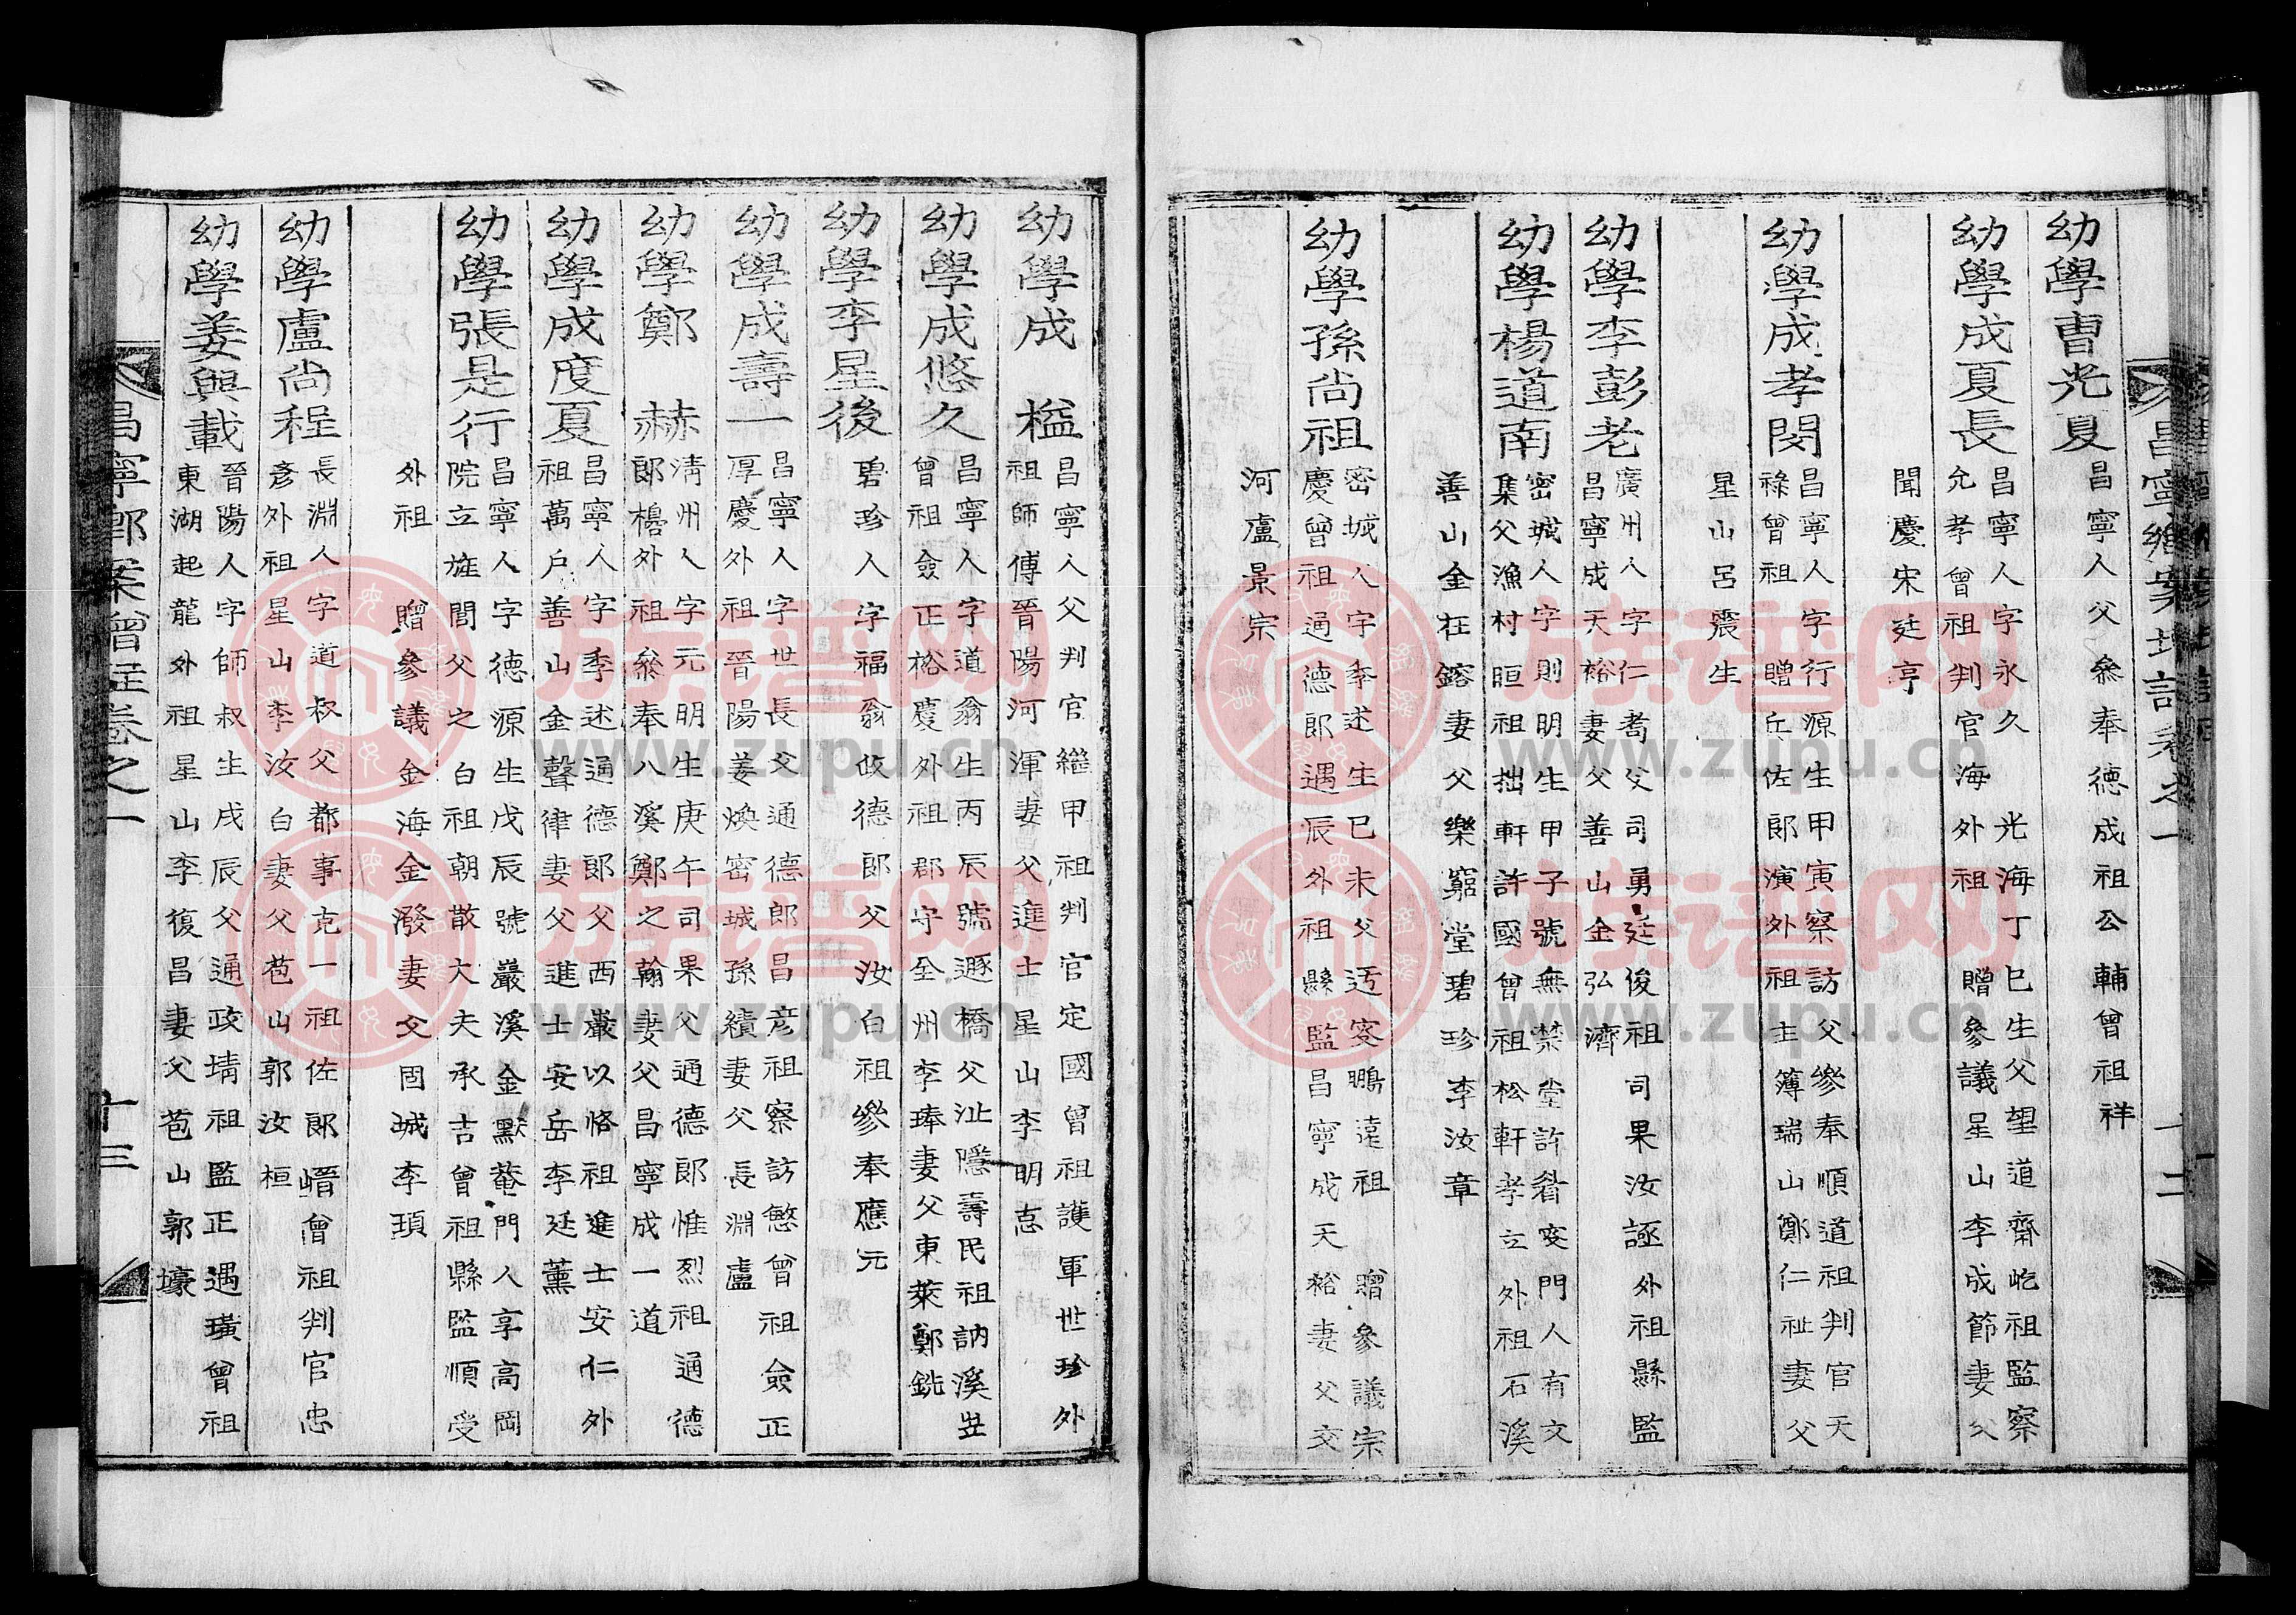 昌寧鄕案增註卷之一
十二
幼學曺光夏
昌寧人父叅奉德成祖公輔曾祖祥
幼學成夏長
昌寧人字永久 光海丁巳生父望道齋屹祖監察
允孝曾祖判官海外祖 贈參議星山李成節妻父
聞慶宋廷亨
幼學成孝閔
昌寧人字行源生甲寅察訪父參奉順道祖判官天
祿曾祖贈丘佐郞演外祖主簿瑞山鄭仁祉妻父
星山呂震生
幼學李彭老
廣州人字仁耉父司勇廷俊祖司果汝諏外祖縣監
昌寧成天裕妻父善山金弘濟
幼學楊道南
密城人字則明生甲子號無禁堂許眉叟門人有文
集父漁村晅祖拙軒許國曾祖松軒孝立外祖石溪
善山金枉鎔妻父樂窮堂碧珍李汝章
幼學孫尙祖
密城人字季述生己未父迃窓鵬遠祖 贈參議宗
慶曾祖通德郞遇辰外祖縣監昌寧成天裕妻父交
河盧景宗
幼學成 楹
昌寧人父判官繼甲祖判官定國曾祖護軍世珍外
祖師傅晉陽河渾妻父進士星山李明怘
幼學成悠久
昌寧人字道翁生丙辰號遯橋父沚隱壽民祖訥溪㞮
曾祖僉正裕慶外祖郡守全州李琫妻父東萊鄭銑
幼學李星後
碧珍人字福翁啟德郞父汝白祖參奉應元
幼學成壽一
昌寧人字世長父通德郞昌彦祖察訪慜曾祖僉正
厚慶外祖晉陽姜煥密城孫績妻父長淵盧
幼學鄭 赫
淸州人字元明生庚午司果父通德郞惟烈祖通德
郞櫓外祖叅奉八溪鄭之翰妻父昌寧成一道
幼學成度夏
昌寧人字季述通德郞父西巖以恪祖進士安仁外
祖萬户善山金聲律妻父進士安岳李廷薰
幼學張是行
昌寧人字德源生戊辰號巖溪金默菴門人享高岡
院立旌閭父之白祖朝散大夫承吉曾祖縣監順受
外祖 贈參議金海金潑妻父固城李頊
幼學盧尙程
長淵人字道叔父都事克一祖佐郞㟳曾祖判官忠
彥外祖星山李汝白妻父苞山郭汝桓
幼學姜與載
晉陽人字師叔生戊辰父通政埥祖監正遇璜曾祖
東湖起龍外祖星山李復昌妻父苞山郭壕
昌寧鄕案曾註卷之一
十三
族谱网
www.zupu.cn
族谱网
www.zupu.cn
族谱网
www.zupu.cn
族谱网
www.zupu.cn